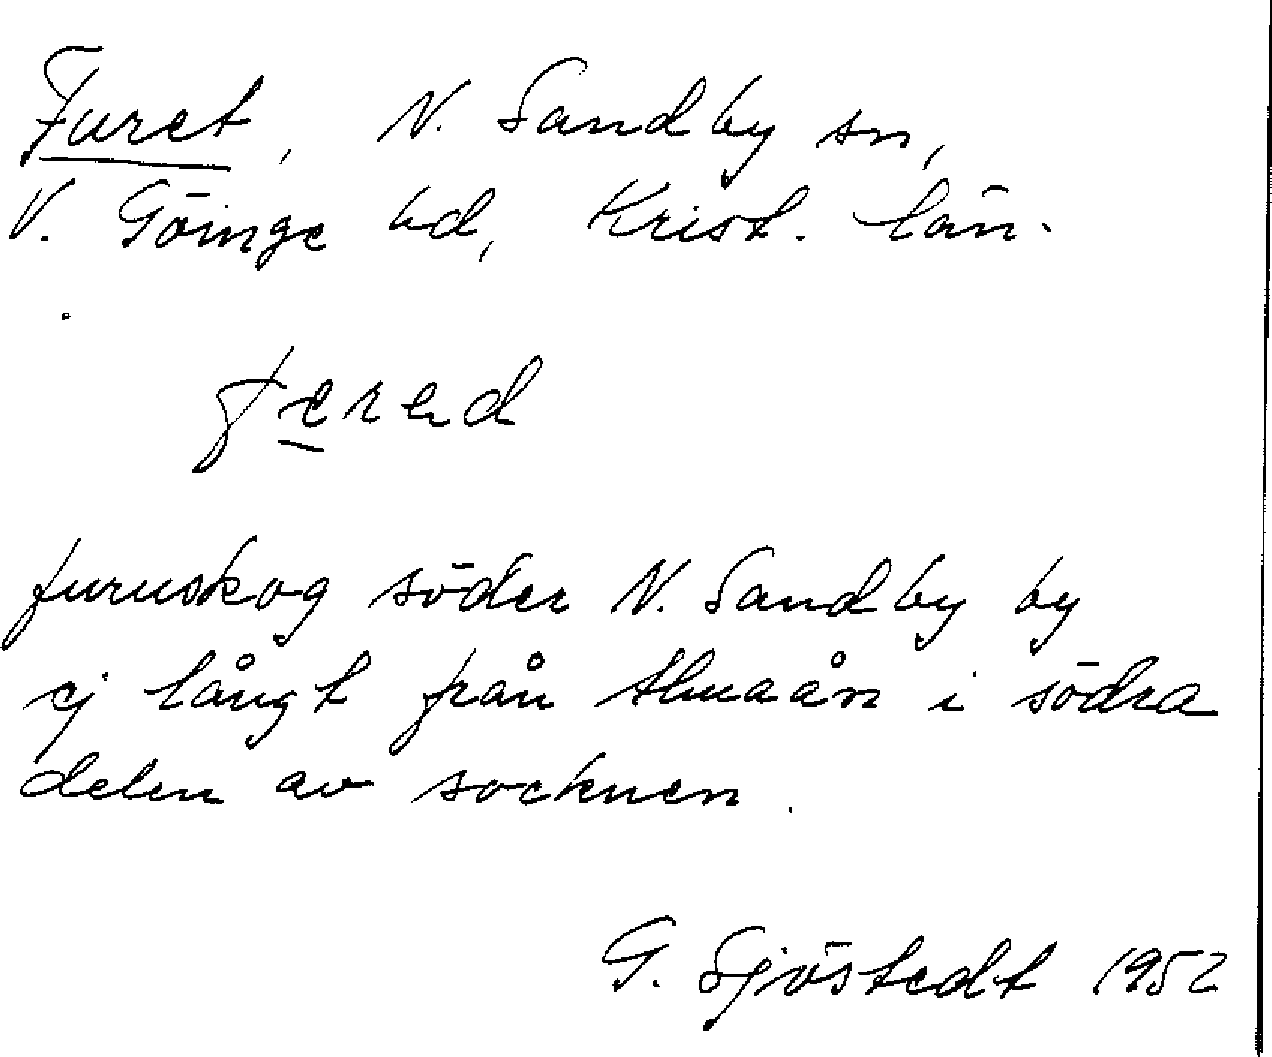 Furet, N. Sandby sn,
V. Göinge hd, Krist. län.
furuskog söder N. Sandby by
ej långt från Almaån i södra
delen av socknen.
G. Sjöstedt 1952